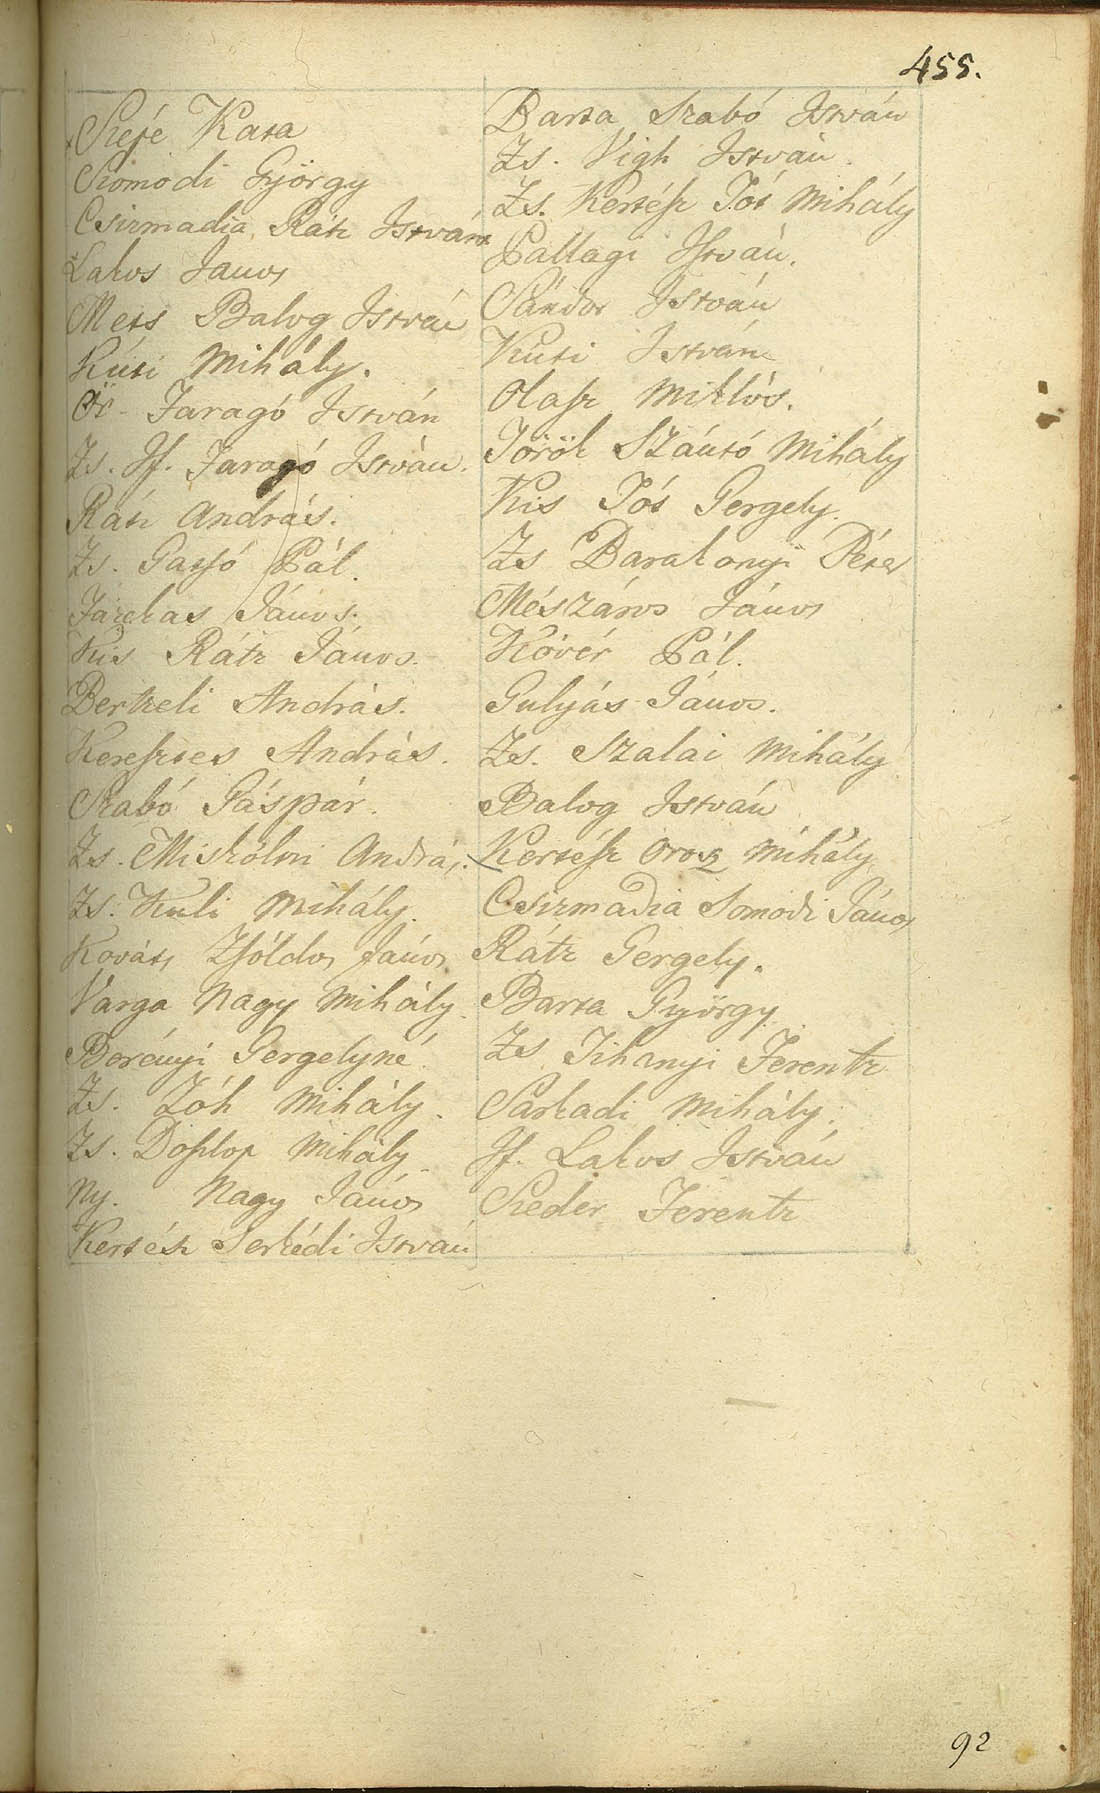 455.
Szepé Kata
Somodi György
Csizmadia Rátz István
Lakos János
Mets Balog István
Kúti Mihály.
Ör. Faragó István
Zs. If. Faragó István.
Rátz András.
Zs. Gatsó Pál.
Farkas János.
Kis Rátz János.
Bertzeli András.
Keresztes András.
Szabó Gáspár.
Zs. Miskóltzi András.
Zs. Kuli Mihály.
Kováts Zsóldos János
Varga Nagy Mihály.
Borényi Gergelyné.
Zs. Zóh Mihály.
Zs. Doszlop Mihály
Ny. Nagy János
Kertész Serkédi István
Barta Szabó István
Zs. Vigh István.
Zs. Kertész Tót Mihály
Pallagi István.
Sándor István
Kuti István
Olasz Miklós.
Török Szántó Mihály
Kis Tót Gergely.
Zs Barakonyi Péter
Mészáros János
Kövér Pál.
Gulyás János.
Zs. Szalai Mihály
Balog István
Kertész Orosz Mihály
Csizmadia Somodi János
Rátz Gergely.
Barta György
Zs Tihanyi Ferentz
Sarkadi Mihály.
If. Lakos István
Szeder Ferentz
92